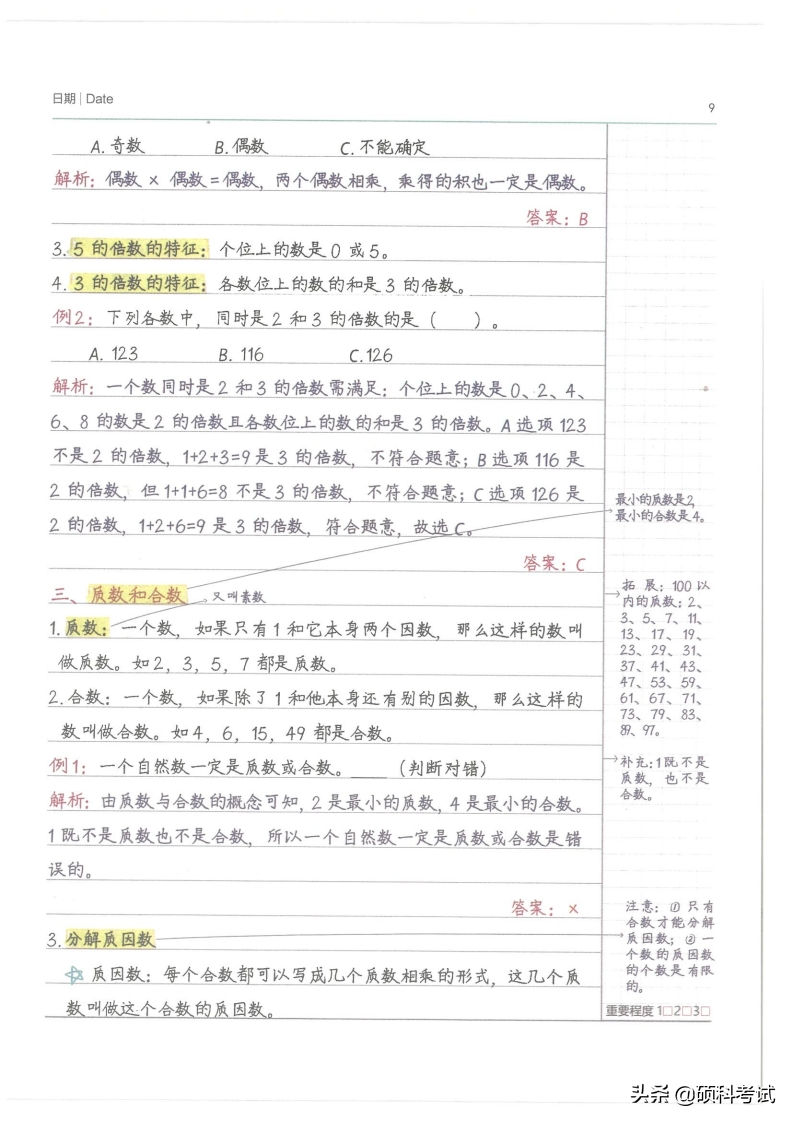 日期 | Date
9
A. 奇数 B. 偶数 C. 不能确定
解析：偶数 × 偶数 = 偶数，两个偶数相乘，乘得的积也一定是偶数。
答案：B
3. 5 的倍数的特征：个位上的数是 0 或 5。
4. 3 的倍数的特征：各数位上的数的和是 3 的倍数。
例2：下列各数中，同时是 2 和 3 的倍数的是（ ）。
A. 123 B. 116 C. 126
解析：一个数同时是 2 和 3 的倍数需满足：个位上的数是 0、2、4、
6、8 的数是 2 的倍数且各数位上的数的和是 3 的倍数。A 选项 123
不是 2 的倍数，1+2+3=9 是 3 的倍数，不符合题意；B 选项 116 是
2 的倍数，但 1+1+6=8 不是 3 的倍数，不符合题意；C 选项 126 是
2 的倍数，1+2+6=9 是 3 的倍数，符合题意，故选 C。
答案：C
三、质数和合数 又叫素数
1. 质数：一个数，如果只有 1 和它本身两个因数，那么这样的数叫
做质数。如 2，3，5，7 都是质数。
2. 合数：一个数，如果除了 1 和他本身还有别的因数，那么这样的
数叫做合数。如 4，6，15，49 都是合数。
例1：一个自然数一定是质数或合数。____（判断对错）
解析：由质数与合数的概念可知，2 是最小的质数，4 是最小的合数。
1 既不是质数也不是合数，所以一个自然数一定是质数或合数是错
误的。
答案：×
3. 分解质因数
☆ 质因数：每个合数都可以写成几个质数相乘的形式，这几个质
数叫做这个合数的质因数。
最小的质数是2，
最小的合数是4。
拓展：100 以
内的质数：2、
3、5、7、11、
13、17、19、
23、29、31、
37、41、43、
47、53、59、
61、67、71、
73、79、83、
89、97。
补充：1 既不是
质数，也不是
合数。
注意：① 只有
合数才能分解
质因数；② 一
个数的质因数
的个数是有限
的。
重要程度 1□2□3□
头条 @硕科考试